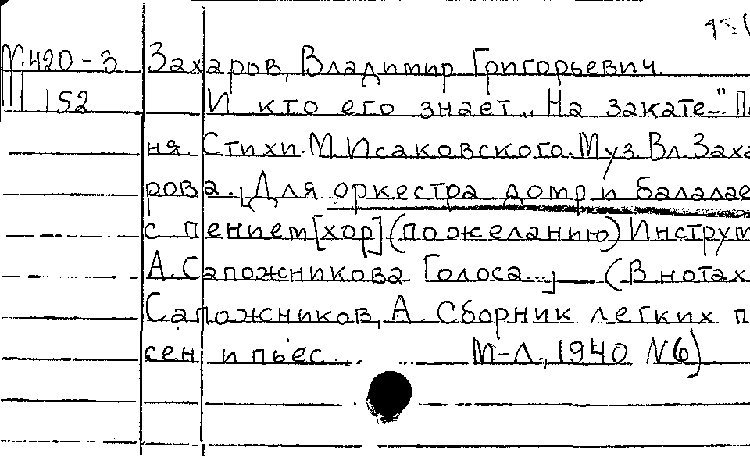 М.420-3 Захаров, Владимир Григорьевич.
III 152 И кто его знает „На закате..." Пе
ня. Стихи. М. Исаковского. Муз. Вл. Заха
рова. [Для оркестра домр и балалае
с пением [хор] (по желанию) Инструм
А. Сапожникова Голоса...] — (В нотах
Сапожников, А. Сборник легких п
сен и пьес... М-Л., 1940 N6)